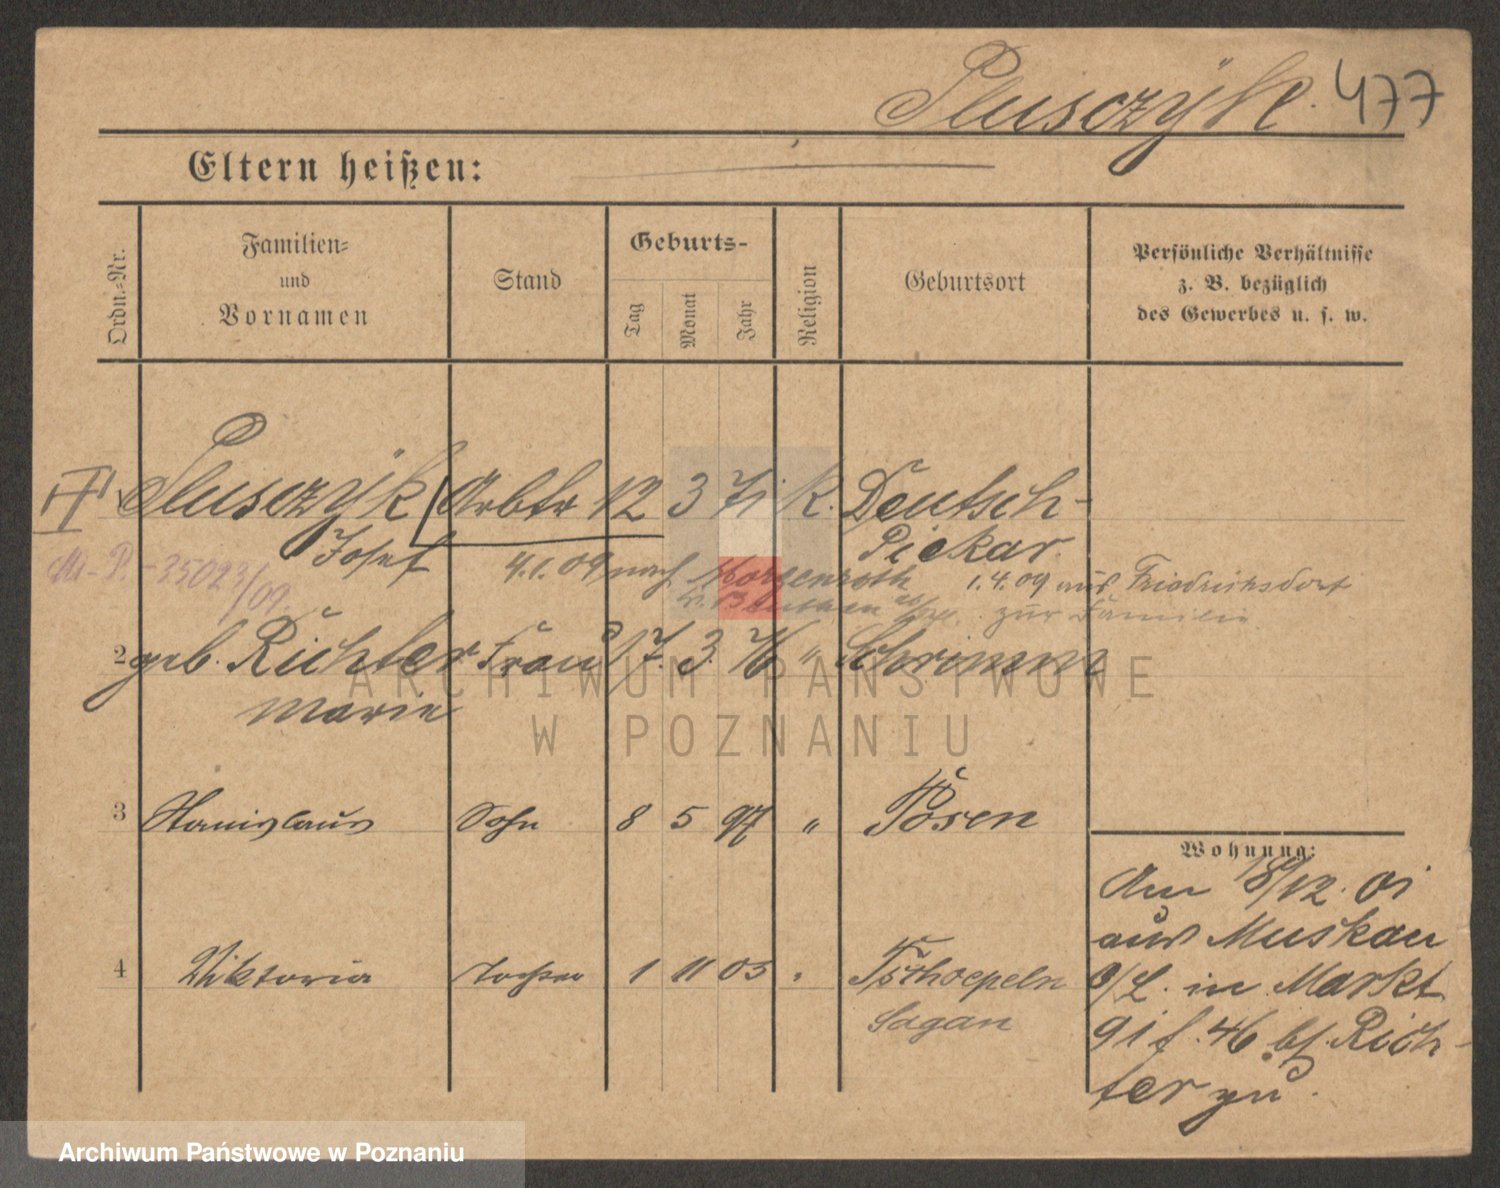 Plusczÿk. 477
Eltern heißen:
Ordn.=Nr.
Familien=
und
Vornamen
Stand
Geburts-
Tag
Monat
Jahr
Religion
Geburtsort
Persönliche Verhältnisse
z. B. bezüglich
des Gewerbes u. s. w.
Plusczÿk Arbtr 12 3 71 K. Deutsch-
Josef Piekar.
4.1.09 nach Morgenroth 1.4.09 aus Friedrichsdorf
zur Familie
35023/09.
2 geb. Richter Frau 17. 3. 76 " Schrimm
Marie
ARCHIWUM PAŃSTWOWE
W POZNANIU
3 Stanislaus Sohn 8 5 97 " Posen
4 Viktoria Tochter 1 11 05 " Tschoepeln
Sagan
Wohnung:
Am 18/12. 01
aus Muskau
O/L. in Markt
91 f. 46 bf. Rich-
ter zu.
Archiwum Państwowe w Poznaniu